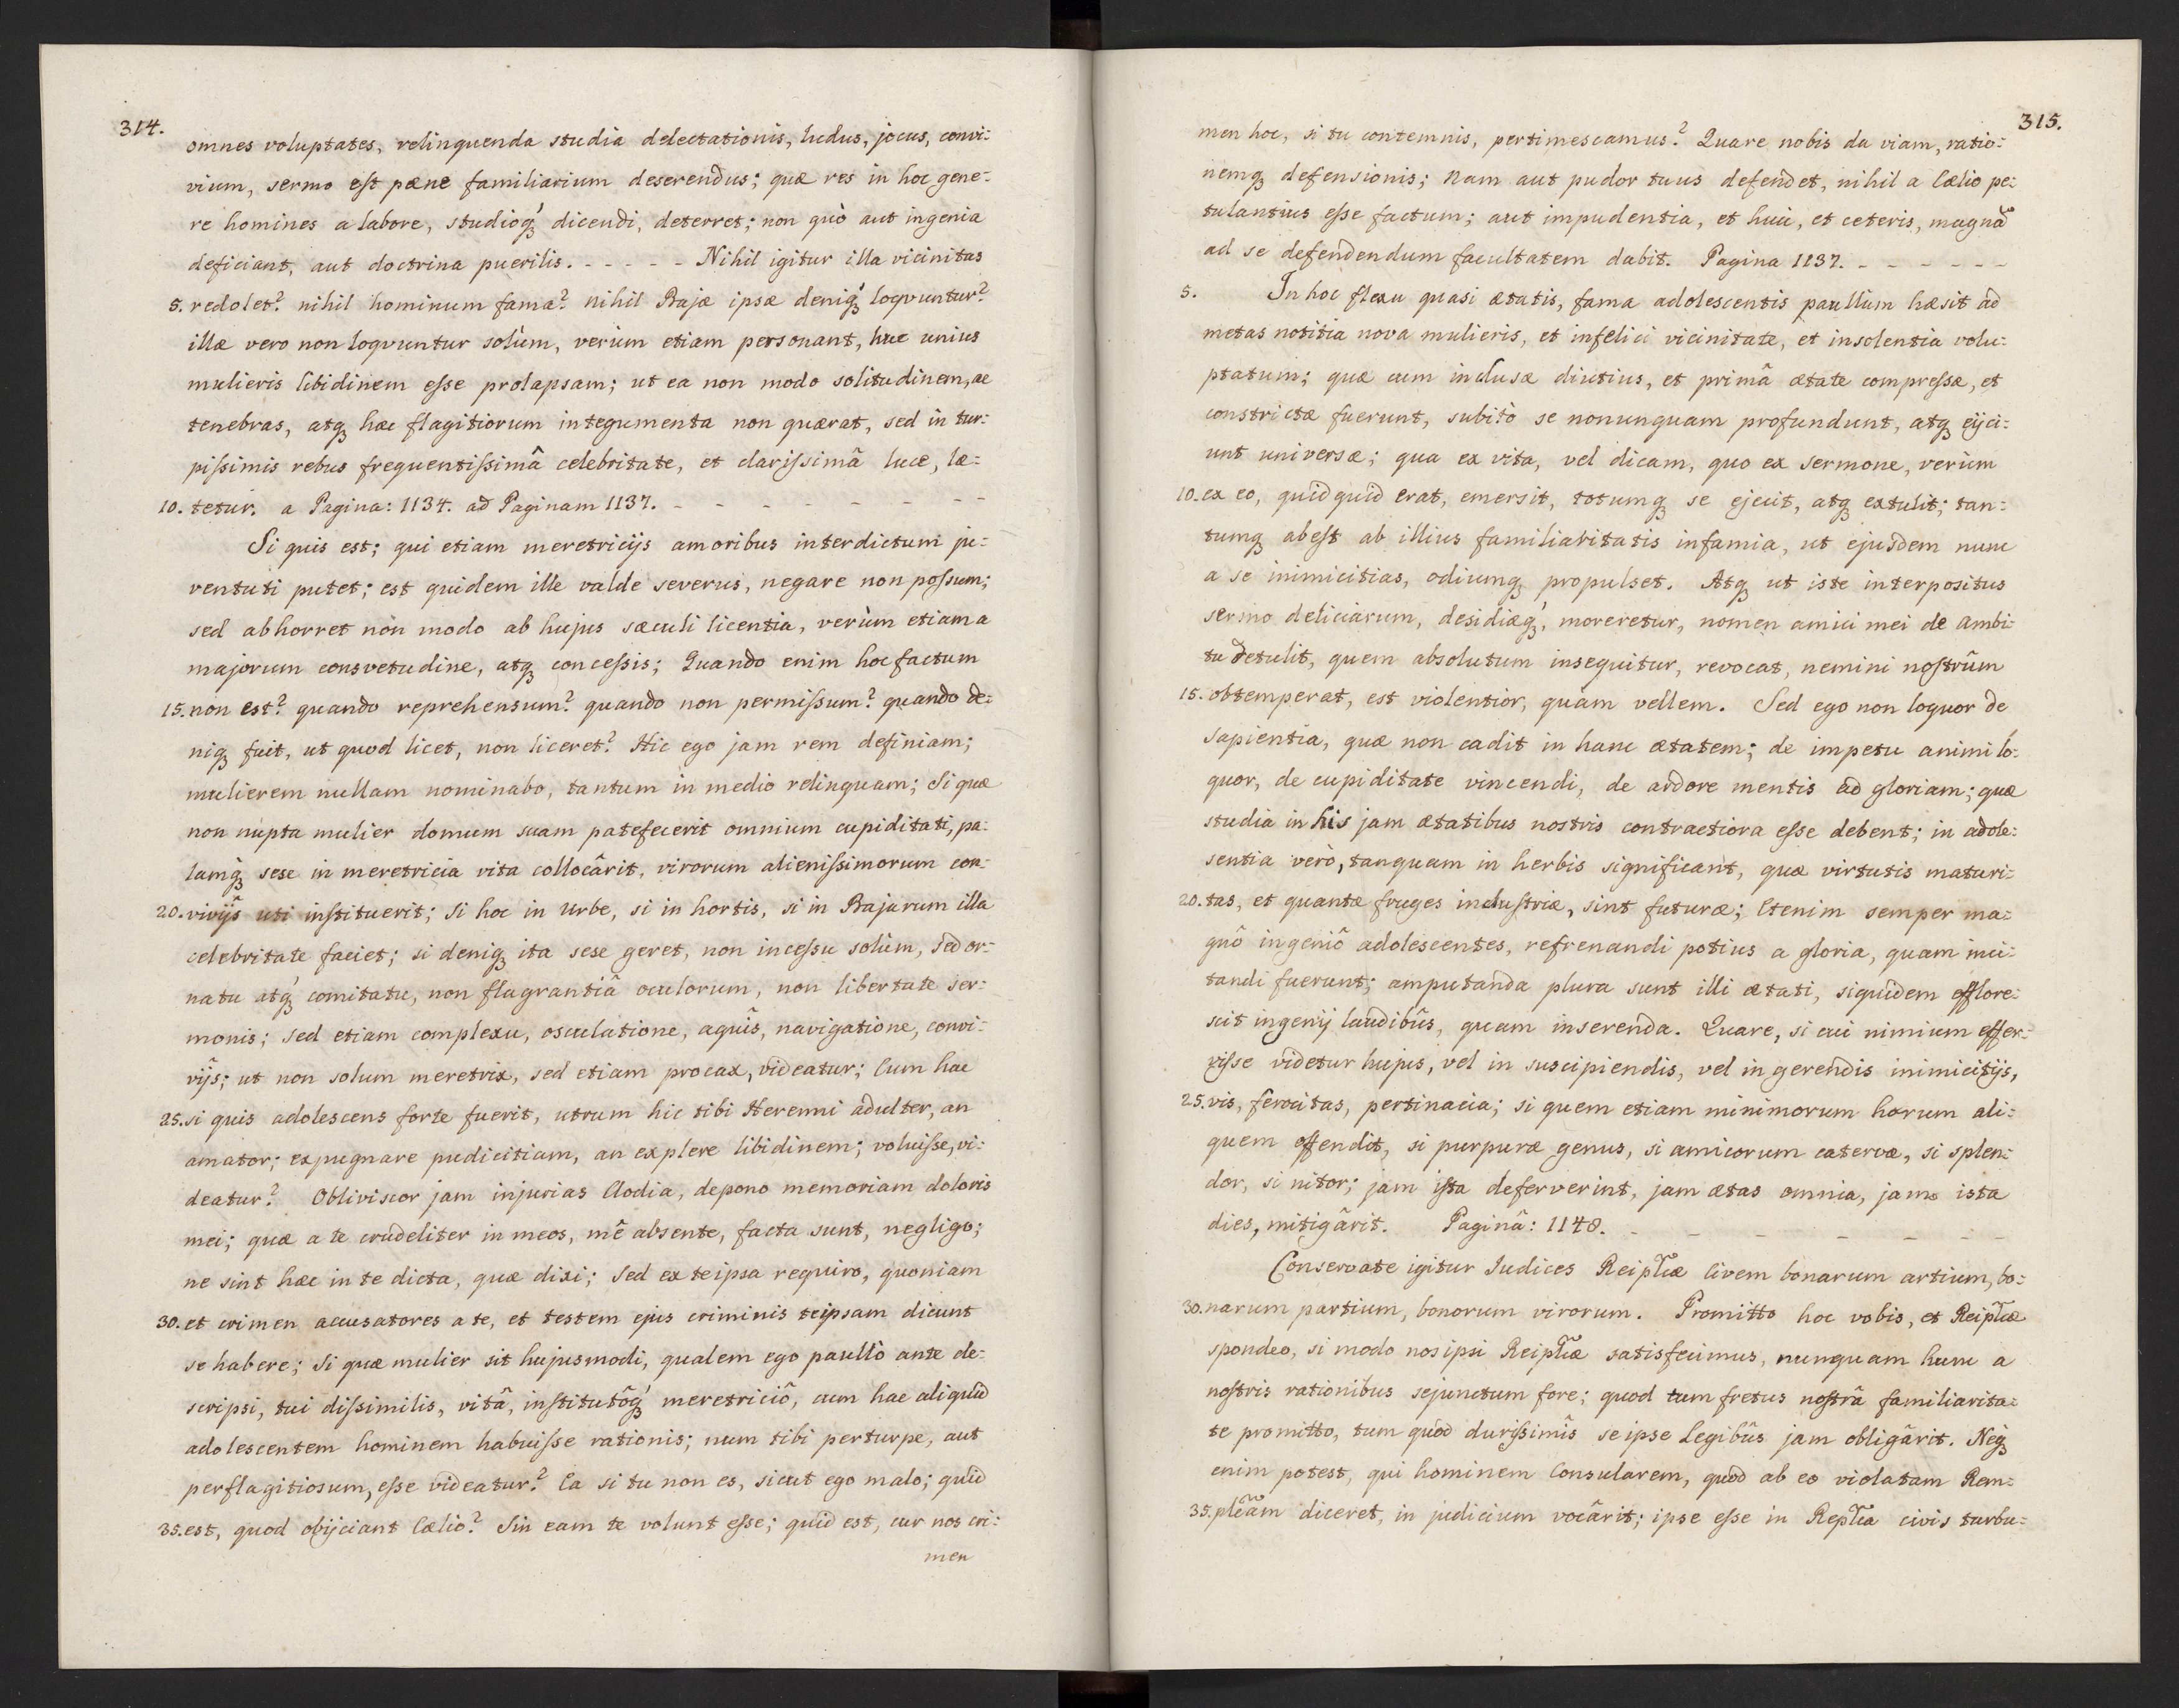 314.
omnes voluptates, relinquenda studia delectationis, ludus, jocus, convi:
vium, sermo est pæne familiarium deserendus; quæ res in hoc gene:
re homines a labore, studioq́ꝫ dicendi, deterret; non quò aut ingenia
deficiant, aut doctrina puerilis. - - - - - Nihil igitur illa vicinitas
5. redolet? nihil hominum fama? nihil Bajæ ipsæ deniq́ꝫ loqvuntur?
illæ vero non loqvuntur solùm, verùm etiam personant, huc unius
mulieris libidinem eſse prolapsam; ut ea non modo solitudinem, ac
tenebras, atqꝫ hæc flagitiorum integumenta non quærat, sed in tur:
piſsimis rebus frequentiſsimâ celebritate, et clariſsimâ luce, læ:
10. tetur. a Pagina: 1134. ad Paginam 1137. - - - - - - -
Si quis est; qui etiam meretricijs amoribus interdictum ju:
ventuti putet; est quidem ille valde severus, negare non poſsum;
sed abhorret non modo ab hujus sæculi licentia, verùm etiam a
majorum consvetudine, atqꝫ conceſsis; Quando enim hoc factum
15. non est? quando reprehensum? quando non permiſsum? quando de:
niqꝫ fuit, ut quod licet, non liceret? Hic ego jam rem definiam;
mulierem nullam nominabo, tantum in medio relinquam; Si quæ
non nupta mulier domum suam patefecerit omnium cupiditati, pa:
lamq́ꝫ sese in meretricia vita collocârit, virorum alieniſsimorum con:
20. vivijs uti instituerit; si hoc in urbe, si in hortis, si in Bajarum illa
celebritate faciet; si deniqꝫ ita sese geret, non inceſsu solùm, sed or:
natu atq́ꝫ comitatu, non flagrantiâ oculorum, non libertate ser:
monis; sed etiam complexu, osculatione, aquîs, navigatione, convi:
vijs; ut non solum meretrix, sed etiam procax, videatur; Cum hac
25. si quis adolescens forte fuerit, utrum hic tibi Herenni adulter, an
amator; expugnare pudicitiam, an explere libidinem; voluiſse, vi:
deatur? Obliviscor jam injurias Clodia, depono memoriam doloris
mei; quæ a te crudeliter in meos, mê absente, facta sunt, negligo;
ne sint hæc in te dicta, quæ dixi; Sed ex teipsa requiro, quoniam
30. et crimen accusatores a te, et testem ejus criminis teipsam dicunt
se habere; Si quæ mulier sit hujusmodi, qualem ego paullò ante de:
scripsi, tui diſsimilis, vitâ, institutôq́ꝫ meretriciô, cum hac aliquid
adolescentem hominem habuiſse rationis; num tibi perturpe, aut
perflagitiosum, eſse videatur? Ea si tu non es, sicut ego malo; quid
35. est, quod obijciant Cælio? Sin eam te volunt eſse; quid est, cur nos cri:
men
315.
men hoc, si tu contemnis, pertimescamus? Quare nobis da viam, ratio:
nemqꝫ defensionis; Nam aut pudor tuus defendet, nihil a Cælio pe:
tulantius eſse factum; aut impudentia, et huic, et ceteris, magnã
ad se defendendum facultatem dabit. Pagina 1137. - - - - - -
5. In hoc flexu quasi ætatis, fama adolescentis paullùm hæsit ad
metas notitia nova mulieris, et infelici vicinitate, et insolentia volu:
ptatum; quæ cum inclusæ diutius, et primâ ætate compreſsæ, et
constrictæ fuerunt, subitò se nonunquam profundunt, atqꝫ ejici:
unt universæ; qua ex vita, vel dicam, quo ex sermone, verùm
10. ex eo, quidquid erat, emersit, totumqꝫ se ejecit, atqꝫ extulit; tan:
tumqꝫ abest ab illius familiaritatis infamia, ut ejusdem nunc
a se inimicitias, odiumqꝫ propulset. Atqꝫ ut iste interpositus
sermo deliciarum, desidiæq́ꝫ, moreretur, nomen amici mei de ambi:
tu detulit, quem absolutum insequitur, revocat, nemini nostrûm
15. obtemperat, est violentior, quàm vellem. Sed ego non loquor de
sapientia, quæ non cadit in hanc ætatem; de impetu animi lo:
quor, de cupiditate vincendi, de ardore mentis ad gloriam; quæ
studia in his jam ætatibus nostris contractiora eſse debent; in adole:
sentia verò, tanquam in herbis significant, quæ virtutis maturi:
20. tas, et quantæ fruges industriæ, sint futuræ; Etenim semper ma:
gnô ingeniô adolescentes, refrenandi potius a gloria, quam inci:
tandi fuerunt; amputanda plura sunt illi ætati, siquidem efflore:
scit ingenij laudibûs, quam inserenda. Quare, si cui nimium effer:
viſse videtur hujus, vel in suscipiendis, vel in gerendis inimicitijs,
25. vis, ferocitas, pertinacia; si quem etiam minimorum horum ali:
quem offendit, si purpuræ genus, si amicorum catervæ, si splen:
dor, si nitor; jam ista deferverint, jam ætas omnia, jam ista
dies, mitigârit. Paginâ: 1148. - - - - - - -
Conservate igitur Iudices Reiplĩcæ Civem bonarum artium, bo:
30. narum partium, bonorum virorum. Promitto hoc vobis, et Reiplĩcæ
spondeo, si modo nos ipsi Reiplĩcæ satisfecimus, nunquam hunc a
nostris rationibus sejunctum fore; quod tum fretus nostrâ familiarita:
te promitto, tum quòd duriſsimîs se ipse Legibûs jam obligârit. Neqꝫ
enim potest, qui hominem Consularem, quòd ab eo violatam Rem:
35. plĩcam diceret, in judicium vocârit; ipse eſse in Replĩca civis turbu: